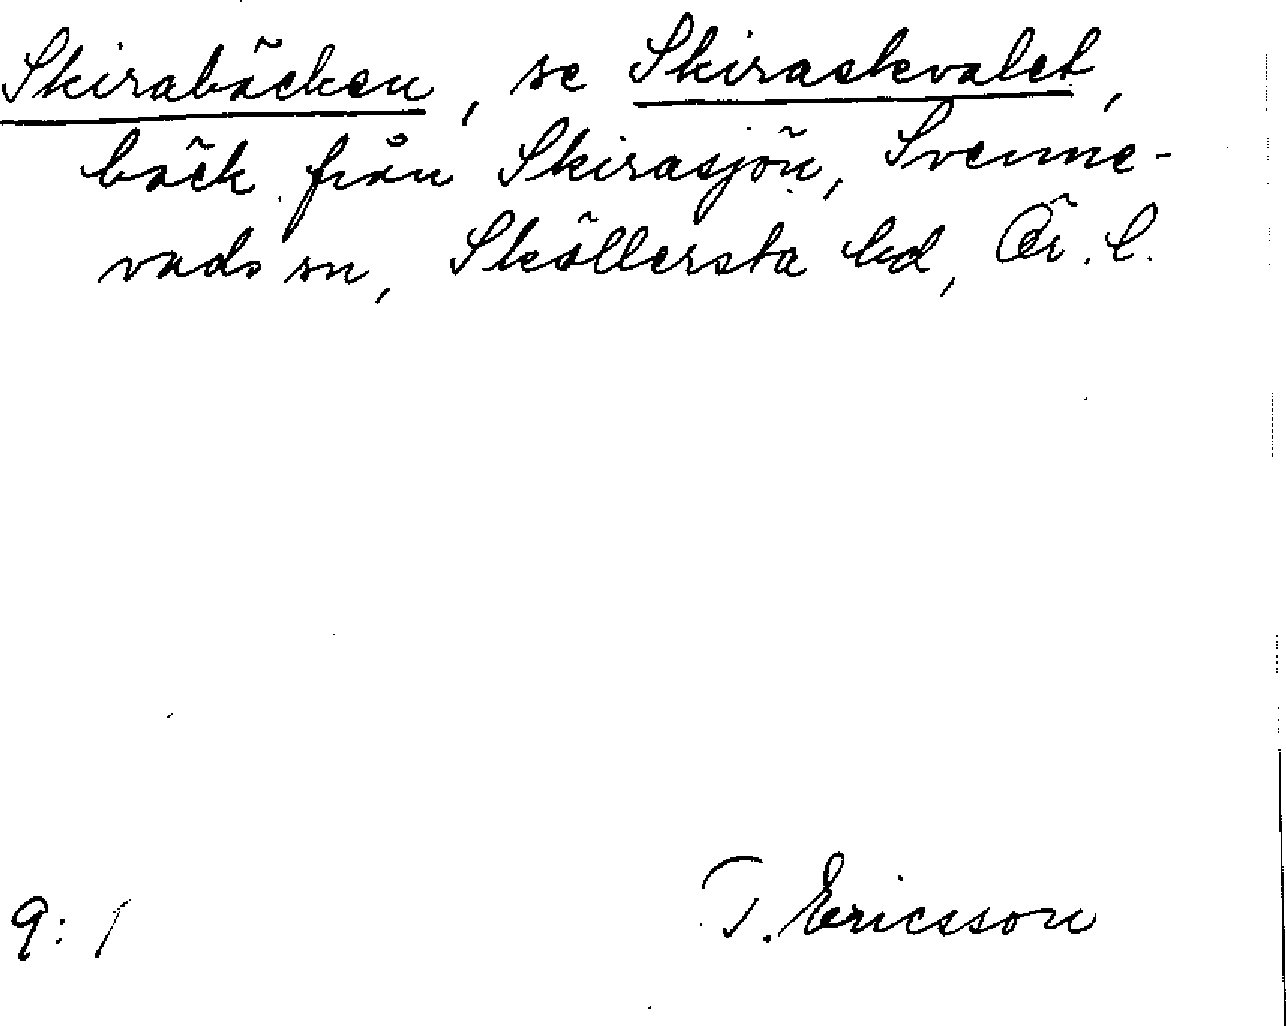 Skirabäcken, se Skiraskvalet,
bäck från Skirasjön, Svenne-
vads sn, Sköllersta hd, Ör. l.
9:1
T. Ericsson